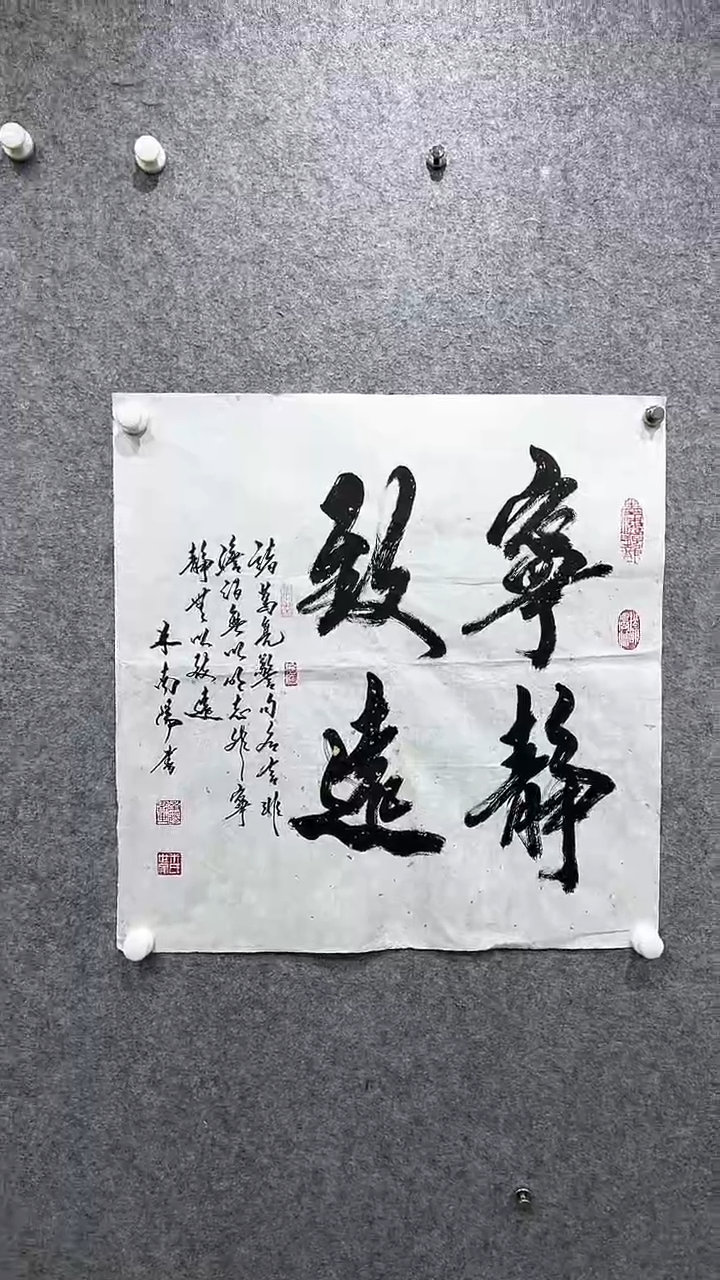 寧靜
致遠
諸葛亮警句名言非
澹泊無以明志非寧
靜無以致遠
木南陽書